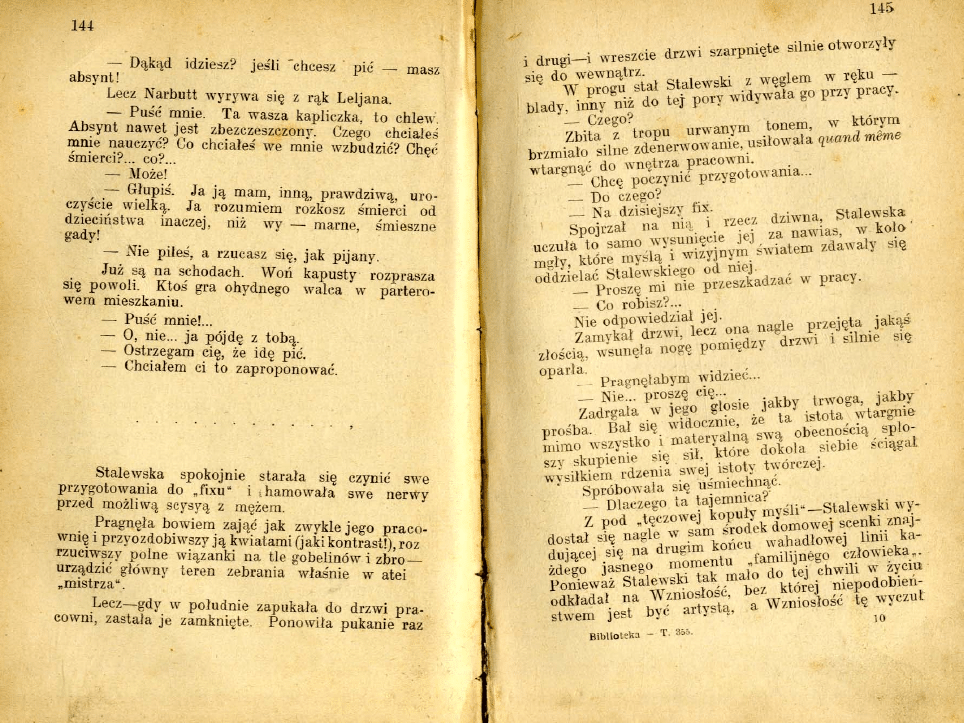 144
— Dąkąd idziesz? jeśli chcesz pić — masz
absynt!
Lecz Narbutt wyrywa się z rąk Leljana.
— Puść mnie. Ta wasza kapliczka, to chlew.
Absynt nawet jest zbezczeszczony. Czego chciałeś
mnie nauczyć? Co chciałeś we mnie wzbudzić? Chęć
śmierci?... co?...
— Może!
— Głupiś. Ja ją mam, inną, prawdziwą, uro-
czyście wielką. Ja rozumiem rozkosz śmierci od
dzieciństwa inaczej, niż wy — marne, śmieszne
gady!
— Nie piłeś, a rzucasz się, jak pijany.
Już są na schodach. Woń kapusty rozprasza
się powoli. Ktoś gra ohydnego walca w partero-
wem mieszkaniu.
— Puść mnie!...
— O, nie... ja pójdę z tobą.
— Ostrzegam cię, że idę pić.
— Chciałem ci to zaproponować.
. . . . . . . . . . . .
Stalewska spokojnie starała się czynić swe
przygotowania do „fixu“ i hamowała swe nerwy
przed możliwą scysyą z mężem.
Pragnęła bowiem zająć jak zwykle jego praco-
wnię i przyozdobiwszy ją kwiatami (jaki kontrast!), roz
rzuciwszy polne wiązanki na tle gobelinów i zbro—
urządzić główny teren zebrania właśnie w atei
„mistrza“.
Lecz—gdy w południe zapukała do drzwi pra-
cowni, zastała je zamknięte. Ponowiła pukanie raz
145
i drugi—i wreszcie drzwi szarpnięte silnie otworzyły
się do wewnątrz.
W progu stał Stalewski z węglem w ręku —
blady, inny niż do tej pory widywała go przy pracy.
— Czego?
Zbita z tropu urwanym tonem, w którym
brzmiało silne zdenerwowanie, usiłowała quand même
wtargnąć do wnętrza pracowni.
— Chcę poczynić przygotowania...
— Do czego?
— Na dzisiejszy fix.
Spojrzał na nią i rzecz dziwna, Stalewska
uczuła to samo wysunięcie jej za nawias, w koło
mgły, które myślą i wizyjnym światem zdawały się
oddzielać Stalewskiego od niej.
— Proszę mi nie przeszkadzać w pracy.
— Co robisz?...
Nie odpowiedział jej.
Zamykał drzwi, lecz ona nagle przejęta jakąś
złością, wsunęła nogę pomiędzy drzwi i silnie się
oparła.
— Pragnęłabym widzieć...
— Nie... proszę cię...
Zadrgała w jego głosie jakby trwoga, jakby
prośba. Bał się widocznie, że ta istota wtargnie
mimo wszystko i materyalną swą obecnością spło-
szy skupienie się sił, które dokoła siebie ściągał
wysiłkiem rdzenia swej istoty twórczej.
Spróbowała się uśmiechnąć.
— Dlaczego ta tajemnica?
Z pod „tęczowej kopuły myśli“—Stalewski wy-
dostał się nagle w sam środek domowej scenki znaj-
dującej się na drugim końcu wahadłowej linii ka-
żdego jasnego momentu „familijnego człowieka„.
Ponieważ Stalewski tak mało do tej chwili w życiu
odkładał na Wzniosłość, bez której niepodobień-
stwem jest być artystą, a Wzniosłość tę wyczuł
Biblioteka — T. 355.
10